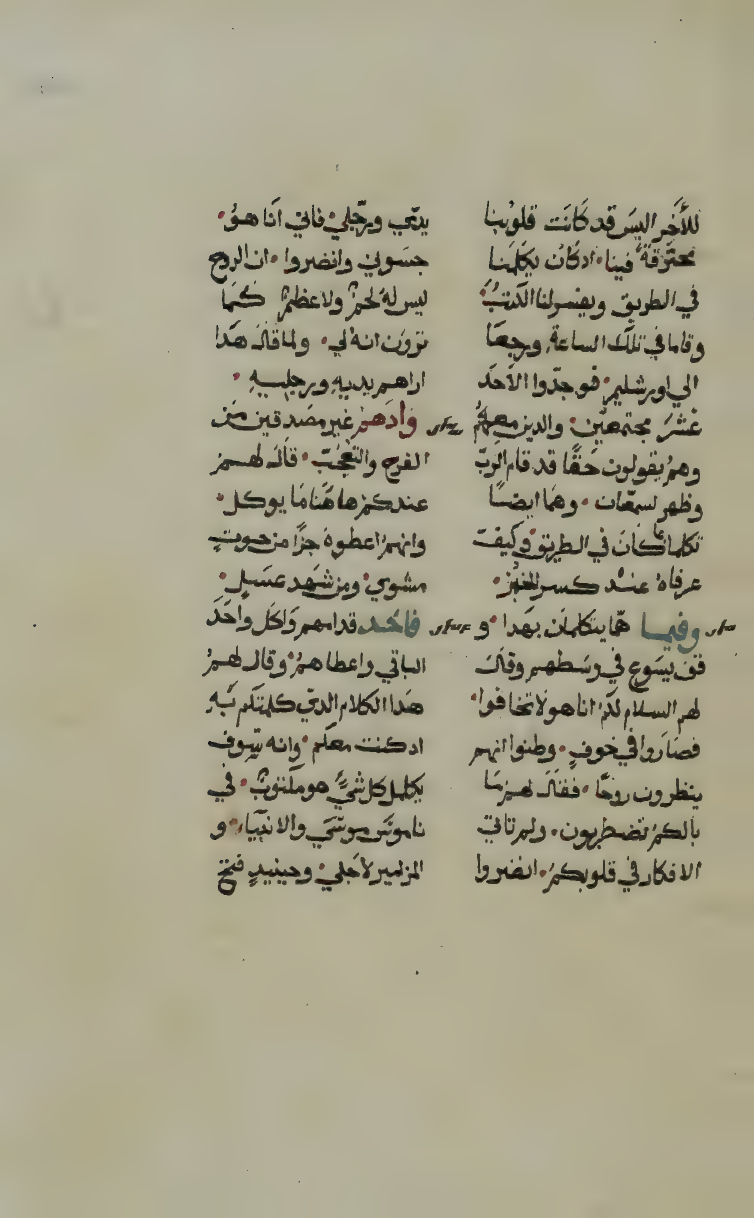 للأخر اليس قد كانت قلوبنا
محترقة فينا۰ ادكان يكلمنا
في الطريق ويفسر لنا الكتب۰
وقاما في تلك الساعة ورجعا
الي اورشليم۰ فوجدوا الاحد
عشر مجتمعين۰ والدين معهم
وهم يقولون حقا قد قام الرب
وظهر لسمعان۰ وهما ايضا
تكلما كان في الطريق وكيف
عرفاه عند كسر الخبز۰
وفيما هما يتكلمان بهدا۰ و
قف يسوع في وسطهم وقال
لهم السلام لكم انا هو لا تخافوا۰
فصاروا في خوف۰ وظنوا انهم
ينظرون روحا۰ فقال لهم ما
بالكم تضطربون۰ ولم تاتي
الافكار في قلوبكم۰ انضروا
يدي ورجلي۰ فاني انا هو۰
جسوني وانضروا۰ ان الروح
ليس له لحم ولا عظم كما
ترون انه لي۰ ولما قال هدا
اراهم يديه ورجليه۰
واد هم غير مصدقين من
الفرح والتعجب۰ قال لهم
عندكم هاهنا ما يوكل۰
وانهم اعطوه جزا من حوت
مشوي۰ ومن شهد عسل۰
فاخد قدامهم واكل واخد
الباقي واعطاهم۰ وقال لهم
هدا الكلام الدي كلمتكم به
ادكنت معكم۰ وانه سوف
يكمل كل شي هو مكتوب۰ في
ناموس موسي والانبياء۰ و
المزامير لاجلي۰ وحينيد فتح